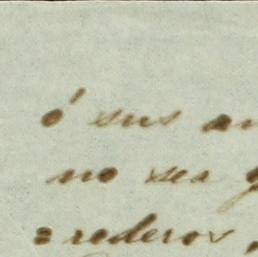 ó sus
no sea
= rederos